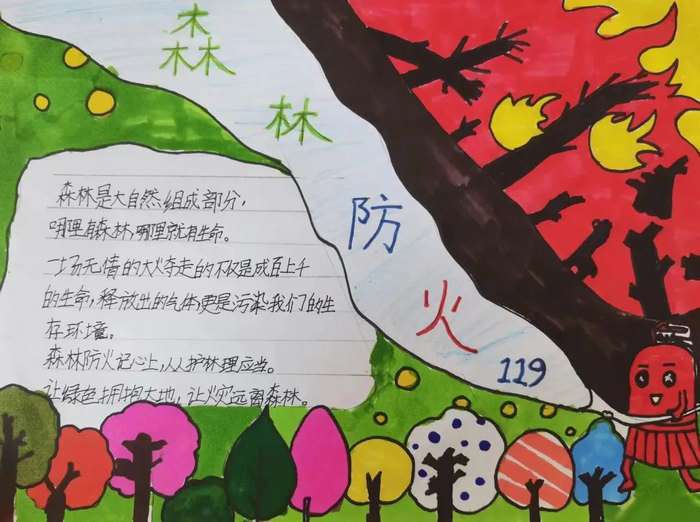 森林
防火
119
森林是大自然组成部分，
哪里有森林，哪里就有生命。
一场无情的大火夺走的不仅是成百上千
的生命，释放出的气体更是污染我们的生
存环境。
森林防火记心上，人人护林理应当。
让绿色拥抱大地，让火灾远离森林。